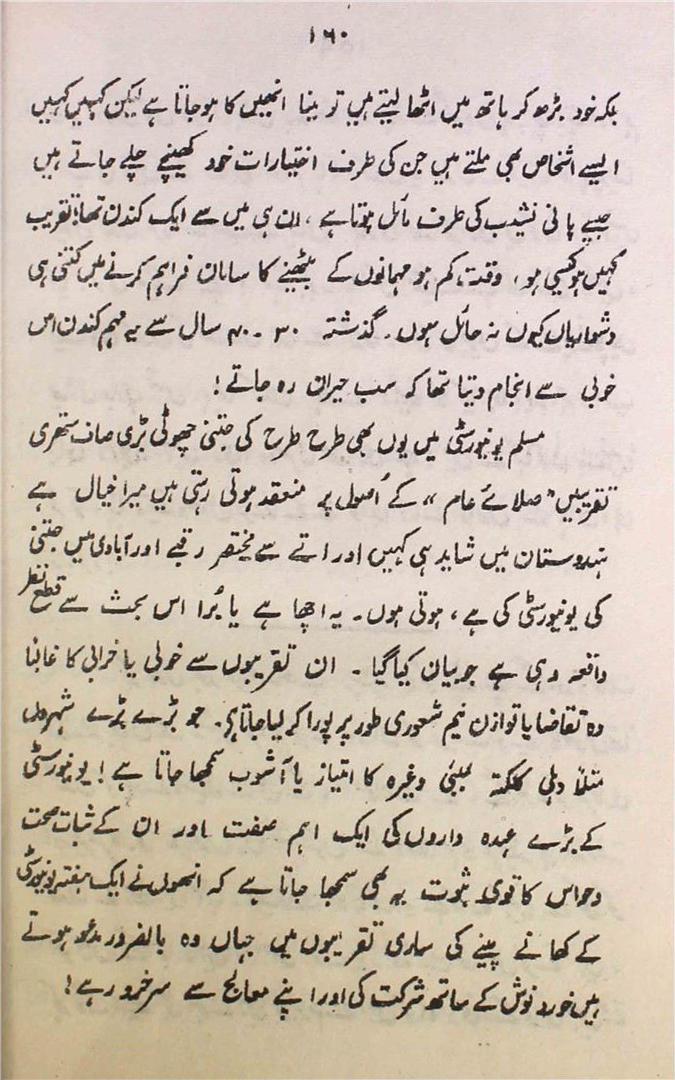 ۱۶۰
بلکہ خود بڑھ کر ہاتھ میں اٹھا لیتے ہیں تو مینا انھیں کا ہو جاتا ہے لیکن کہیں کہیں
ایسے اشخاص بھی ملتے ہیں جن کی طرف اختیارات خود کھینچے چلے جاتے ہیں
جیسے پانی نشیب کی طرف مائل ہوتا ہے، ان ہی میں سے ایک کندن تھا؛ تقریب
کہیں ہو کیسی ہو، وقت کم ہو مہمانوں کے بیٹھنے کا سامان فراہم کرنے میں کتنی ہی
دشواریاں کیوں نہ حائل ہوں۔ گذشتہ ۳۰۔۴۰ سال سے یہ مہم کندن اس
خوبی سے انجام دیتا تھا کہ سب حیران رہ جاتے!
مسلم یونیورسٹی میں یوں بھی طرح طرح کی جتنی چھوٹی بڑی صاف ستھری
تقریبیں "صلائے عام" کے اُصول پر منعقد ہوتی رہتی ہیں میرا خیال ہے
ہندوستان میں شاید ہی کہیں اور اتنے سے مختصر رقبے اور آبادی میں جتنی
کی یونیورسٹی کی ہے، ہوتی ہوں۔ یہ اچھا ہے یا بُرا اس بحث سے قطع نظر
واقعہ وہی ہے جو بیان کیا گیا۔ ان تقریبوں سے خوبی یا خرابی کا غالباً
وہ تقاضا یا توازن نیم شعوری طور پر پورا کر لیا جاتا ہے۔ جو بڑے بڑے شہروں
مثلاً دہلی کلکتہ بمبئی وغیرہ کا امتیاز یا آشوب سمجھا جاتا ہے! یونیورسٹی
کے بڑے عہدہ داروں کی ایک اہم صفت اور ان کے ثبات صحت
و حواس کا قوی ثبوت یہ بھی سمجھا جاتا ہے کہ انھوں نے ایک ہفتہ یونیورسٹی
کے کھانے پینے کی ساری تقریبوں میں جہاں وہ بالضرور مدعو ہوتے
ہیں خورد نوش کے ساتھ شرکت کی اور اپنے معالج سے سرخرو رہے!